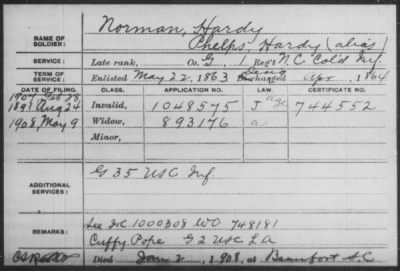 NAME OF SOLDIER: Norman, Hardy
Phelps, Hardy (alias)
SERVICE: Late rank, Co. G, 1 Reg't N.C. Col'd Inf.
TERM OF SERVICE: Enlisted May 22, 1863 Discharged Apr , 1864
DATE OF FILING. CLASS. APPLICATION NO. LAW. CERTIFICATE NO.
1907 Feb 28
1891 Aug 24 Invalid, 1048575 J age 744552
1908, May 9 Widow, 893176 a
Minor,
ADDITIONAL SERVICES: G 35 USC Inf
REMARKS: See I.C. 1000308 WO 748181
Cuffy Pope G 2 USC L A
Died Jan 2, 1908, at Beaufort S.C.